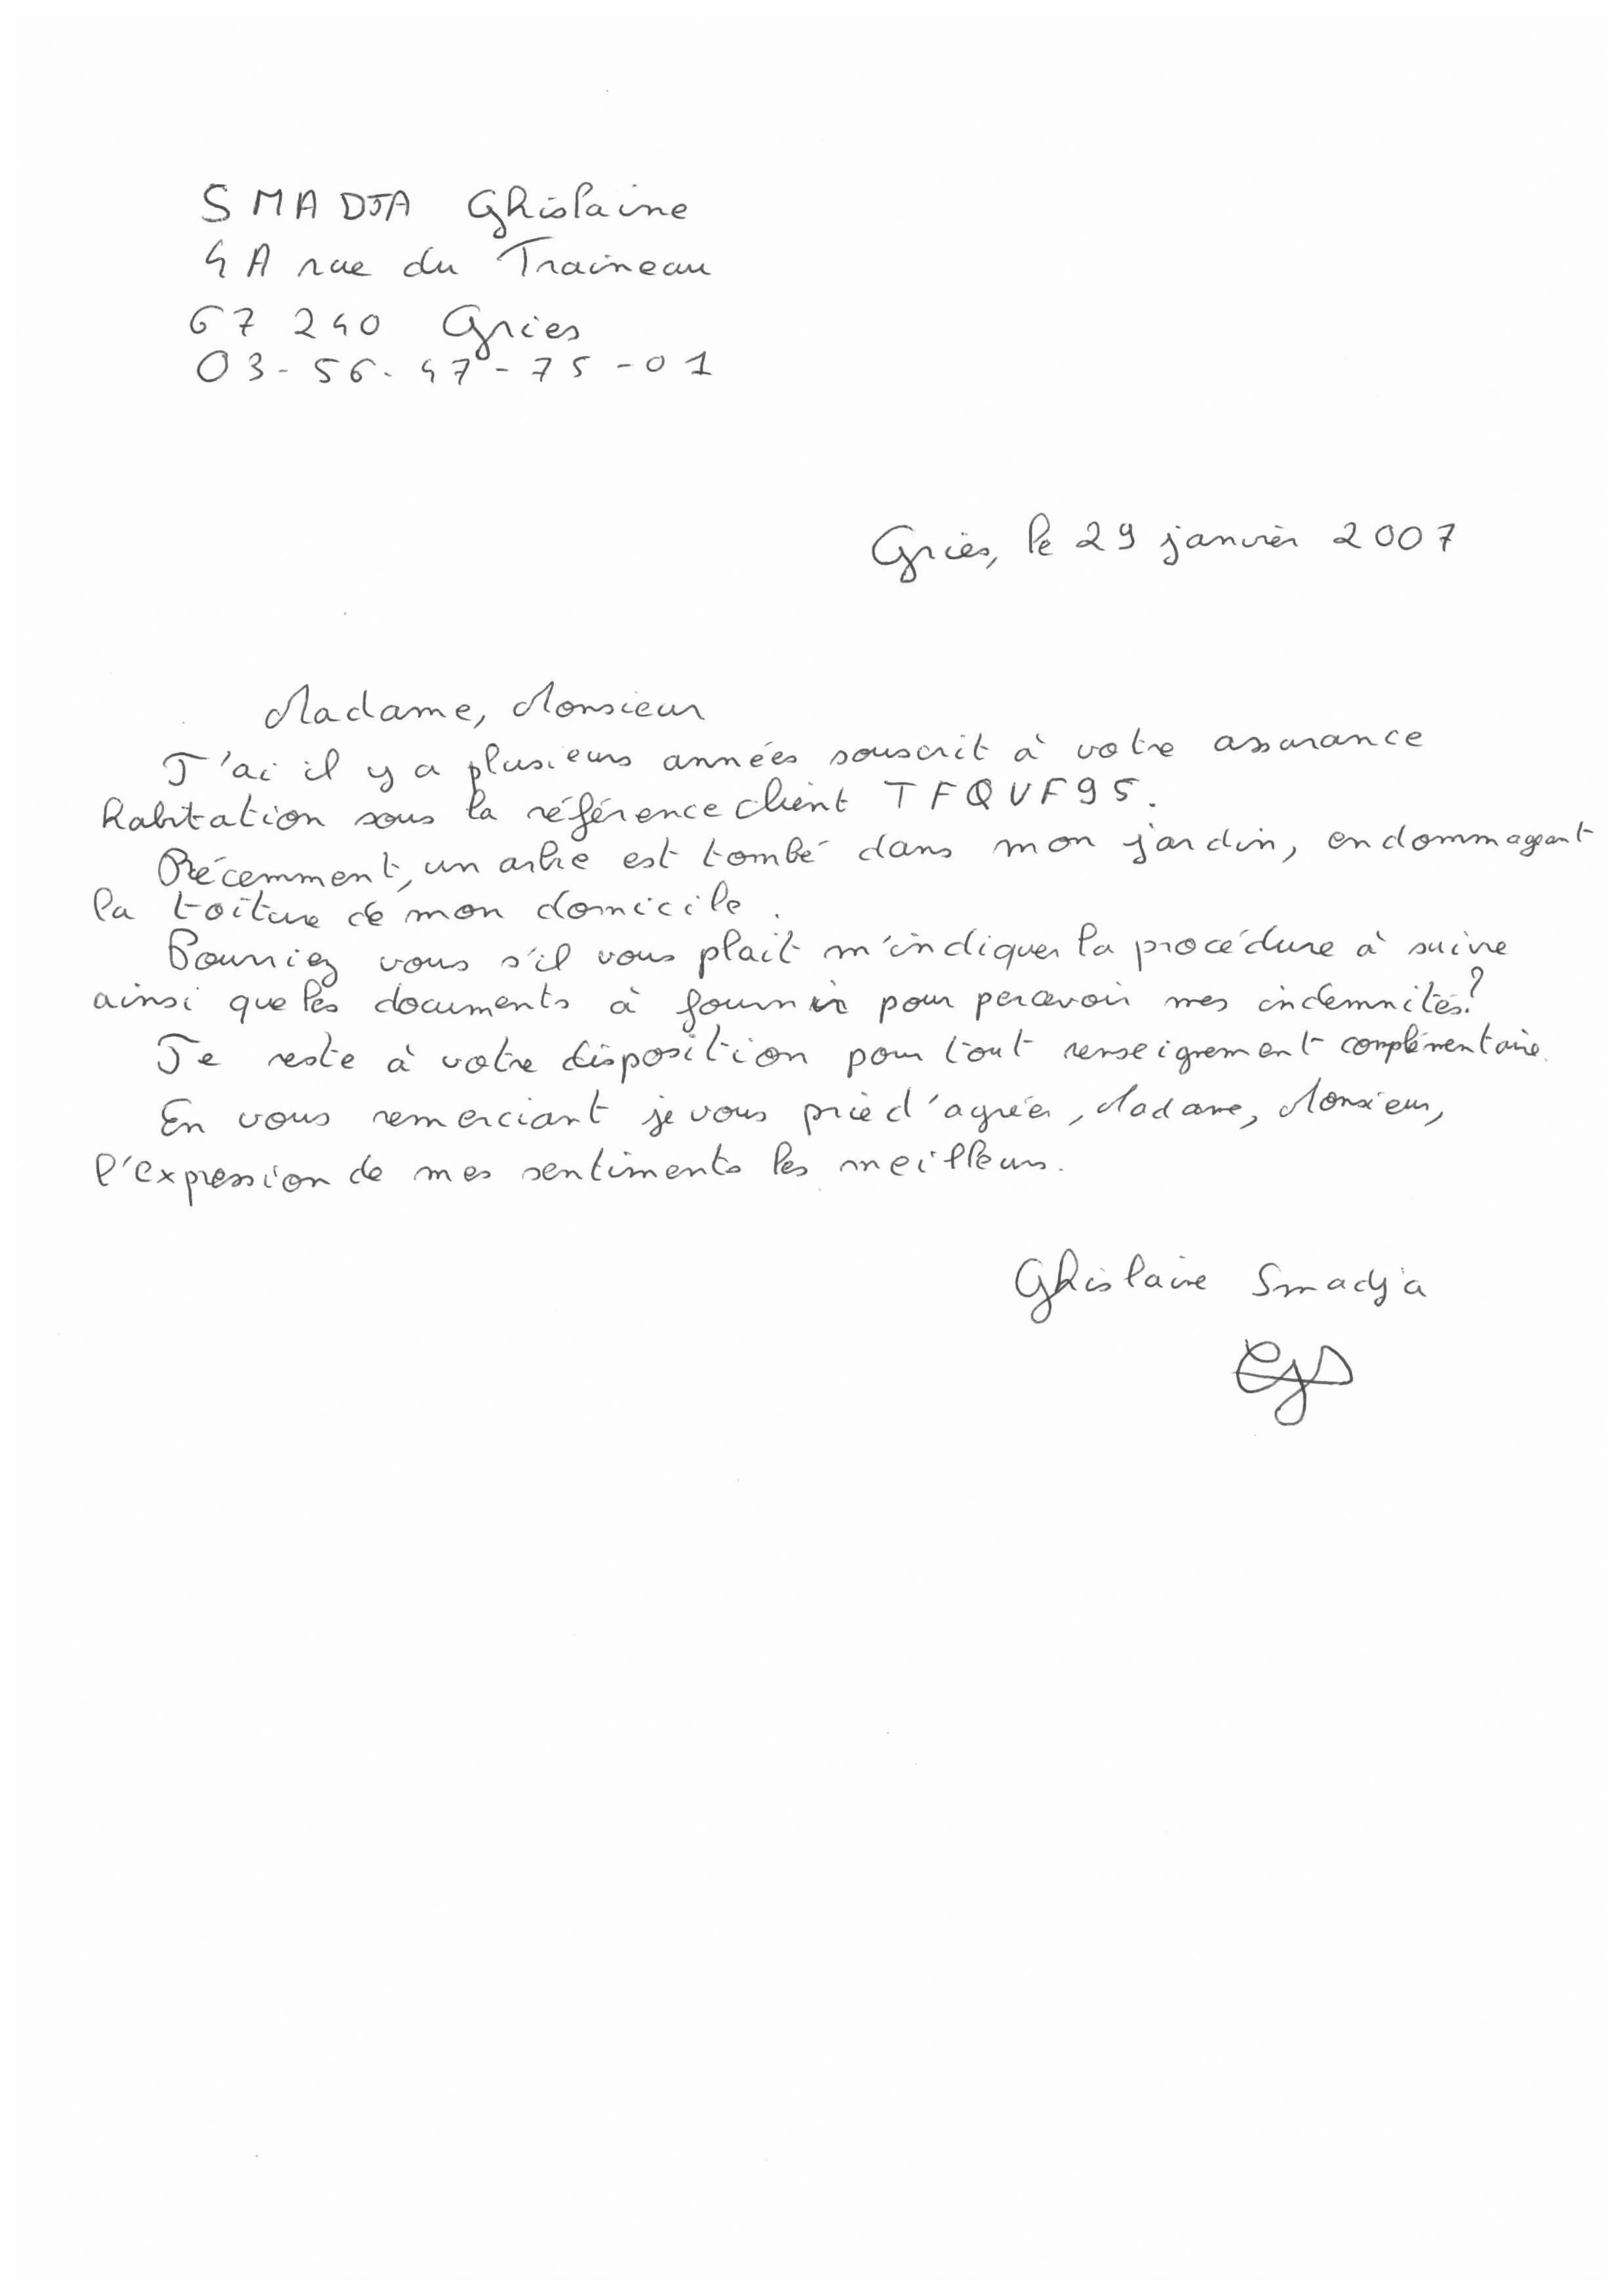 SMADJA Ghislaine
4A rue du Traineau
67 240 Gries
03-56-47-75-01
Gries, le 29 janvier 2007
Madame, Monsieur
J'ai il y a plusieurs années souscrit à votre assurance
habitation sous la référence client TFQVF95.
Récemment, un arbre est tombé dans mon jardin, endommageant
la toiture de mon domicile.
Pourriez vous s'il vous plait m'indiquer la procédure à suivre
ainsi que les documents à fournir pour percevoir mes indemnités?
Je reste à votre disposition pour tout renseignement complémentaire.
En vous remerciant je vous prie d'agréer, Madame, Monsieur,
l'expression de mes sentiments les meilleurs.
Ghislaine Smadja